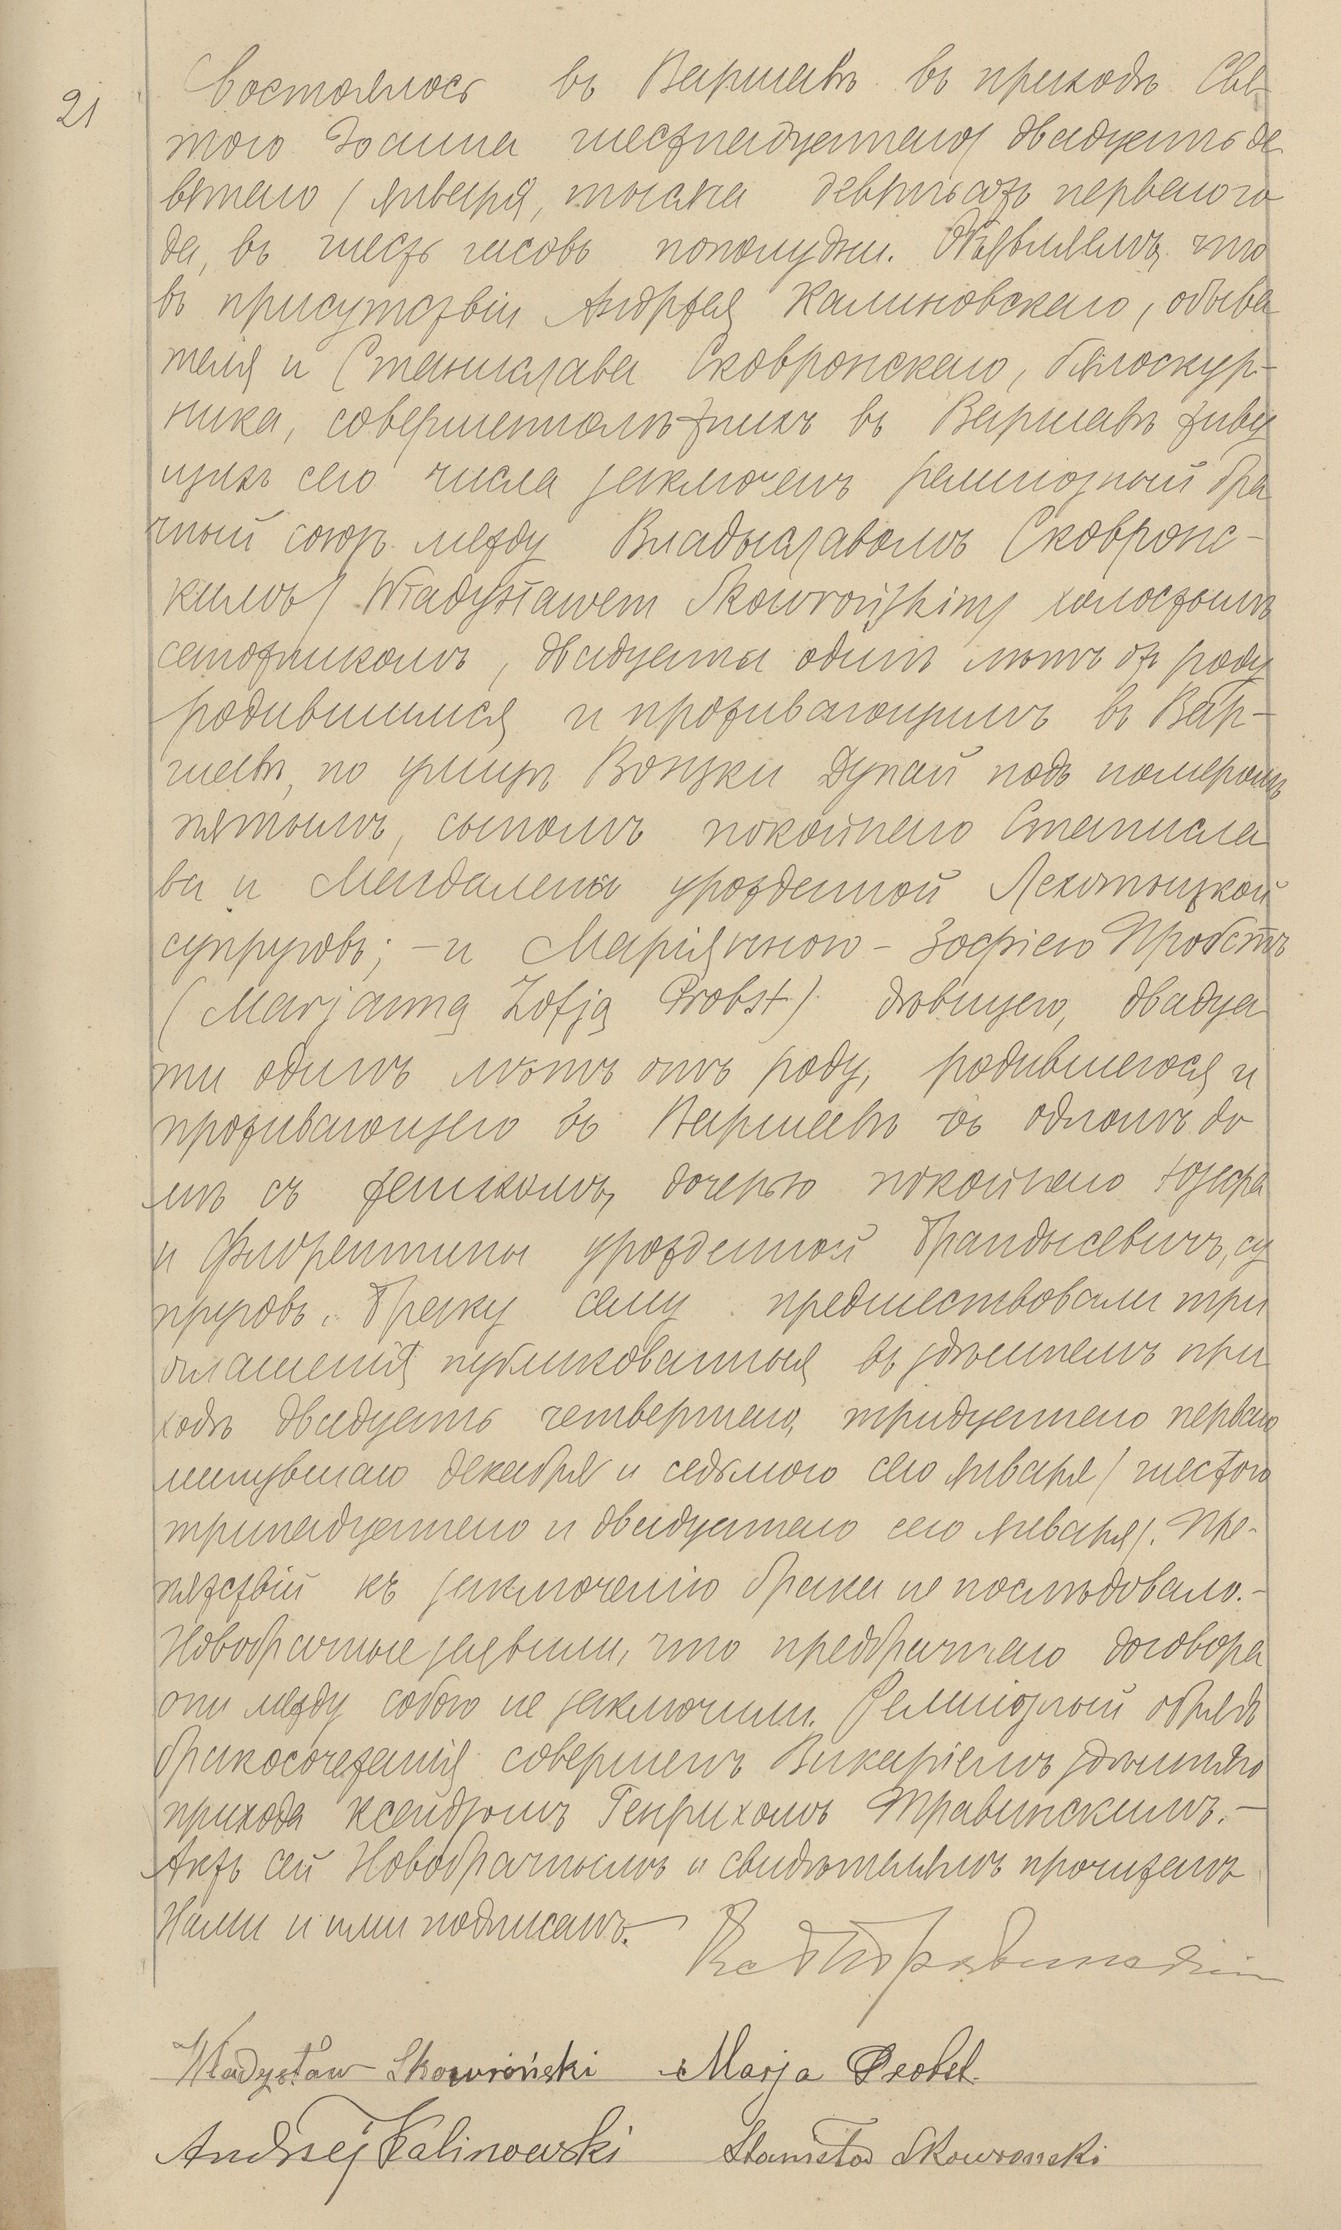 21
Состоялось въ Варшавѣ въ приходѣ Свя-
того Іоанна шестнадцатаго / двадцать де
вятаго / Января, тысяча девятьсотъ перваго го
да, въ шесть часовъ пополудни. Объявляемъ, что
въ присутствіи Андрея Калиновскаго, обыва
теля и Станислава Сковронскаго, бѣлоскур-
ника, совершеннолѣтнихъ въ Варшавѣ живу
щихъ сего числа заключенъ религіозный бра
чный союзъ между Владыславомъ Сковронс-
кимъ / Władysławem Skowrońskim / холостымъ
сапожникомъ, двадцати одинъ лѣтъ отъ роду
родившимся и проживающимъ въ Вар-
шавѣ, по улицѣ Вонзки Дунай подъ номеромъ
пятымъ, сыномъ покойнаго Станисла
ва и Магдалены урожденной Лехотыцкой
супруговъ; – и Маріянною – Зофіею Пробстъ
(Marjanną Zofją Probst) дѣвицею, двадца
ти одинъ лѣтъ отъ роду, родившеюся и
проживающею въ Варшавѣ въ одномъ до
мѣ съ женихомъ, дочерью покойнаго Юзефа
и Флорентины урожденной Брандысевичъ, су
пруговъ. Браку сему предшествовали три
оглашенія публикованныя въ здѣшнемъ при
ходѣ двадцать четвертаго, тридцатаго перваго
минувшаго Декабря и седьмого сего Января / шестого
тринадцатаго и двадцатаго сего Января /. Пре-
пятствій къ заключенію брака не послѣдовало. –
Новобрачные заявили, что предбрачнаго договора
они между собою не заключили. Религіозный обрядъ
бракосочетанія совершенъ Викаріемъ здѣшняго
прихода Ксендзомъ Генрихомъ Травинскимъ. –
Актъ сей Новобрачнымъ и свидѣтелямъ прочитанъ
Нами и ими подписанъ.
Władysław Skowroński Marja Probst
Andrzej Kalinowski Stanisław Skowronski